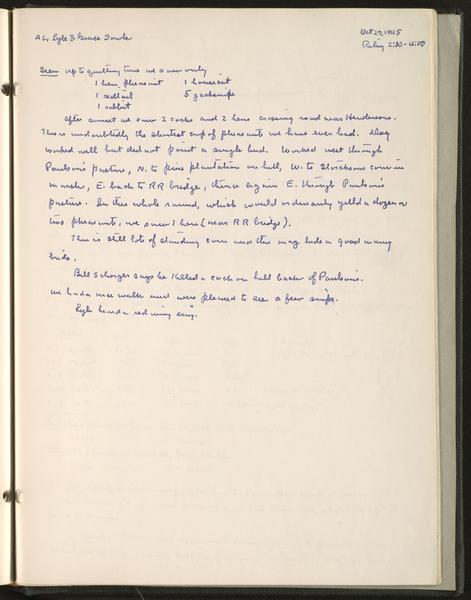 AL, Lyle & Grace Sowls
Oct 29, 1945
Riley 2:30 - 4:00
Seen up to quitting time we saw only
1 hen pheasant 1 housecat
1 redtail 5 jacksnipe
1 rabbit
After sunset we saw 2 cocks and 2 hens crossing road near Hendersons.
This is undoubtedly the shortest crop of pheasants we have ever had. Dog
worked well but did not point a single bird. Worked west through
Paulson's pasture, N. to pine plantation on hill, W. to corn in
marsh, E. back to RR bridge, thence again E. through Paulson's
pasture. In this whole round, which would ordinarily yield a dozen or
two pheasants, we saw 1 hen (near RR bridge).
There is still lots of standing corn and this may hide a good many
birds.
Bill Schorger says he killed a cock on hill back of Paulson's.
We had a nice walk and were pleased to see a few snipe.
Lyle heard a red wing sing.